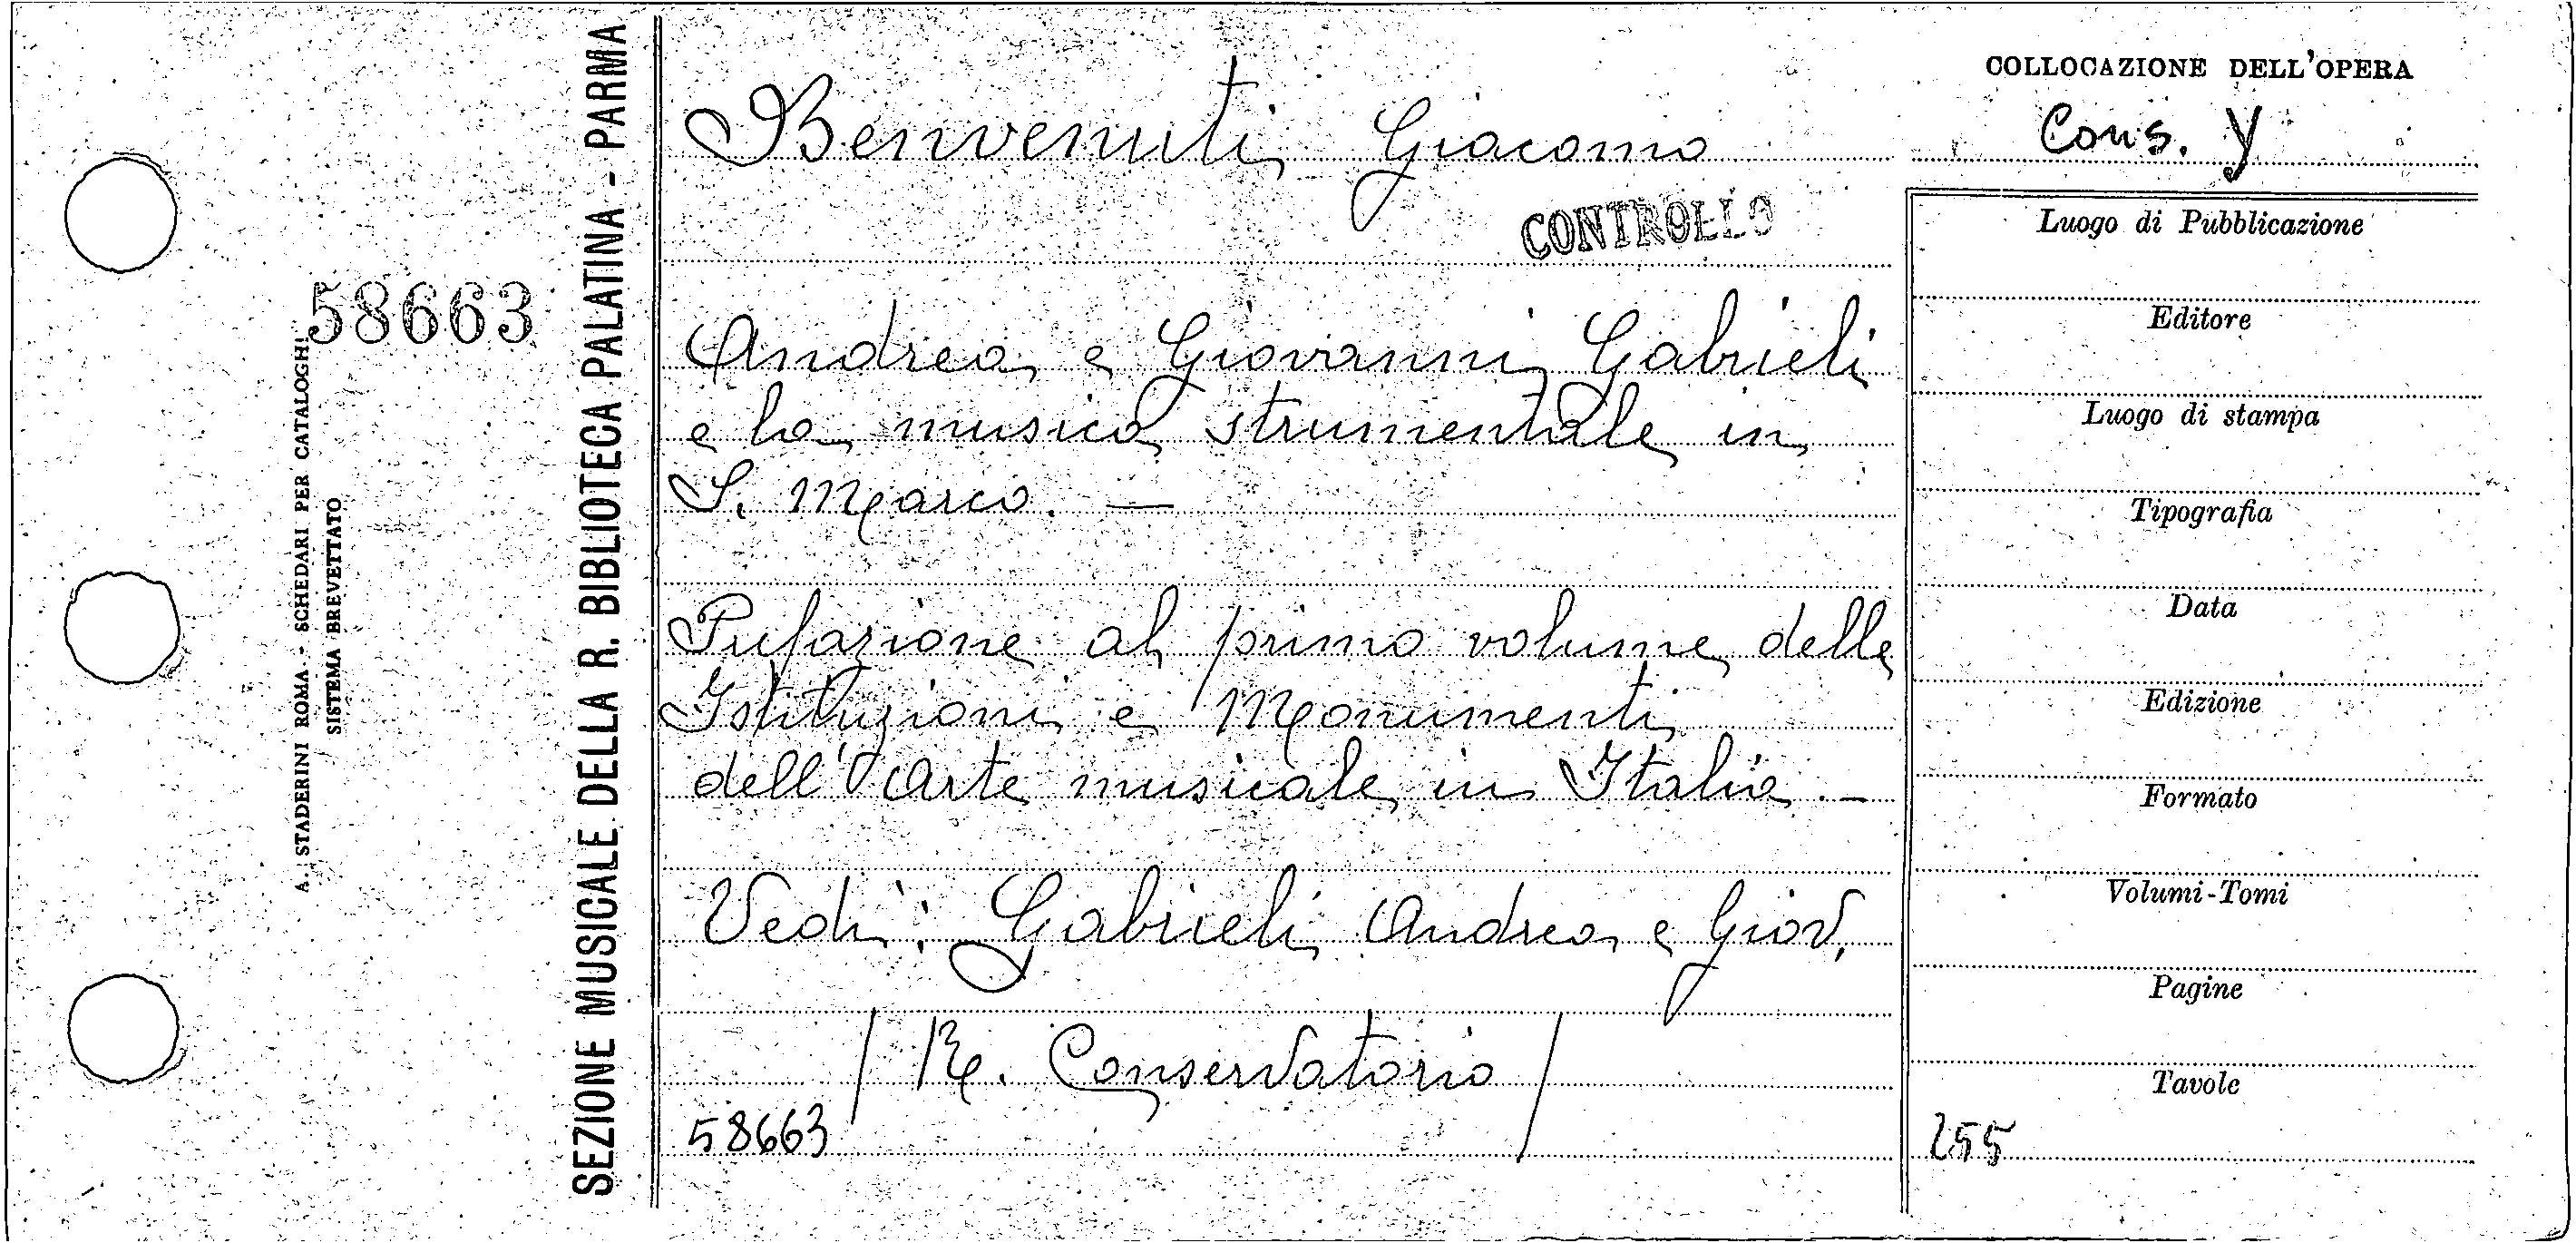 SEZIONE MUSICALE DELLA R. BIBLIOTECA PALATINA - PARMA
A. STADERINI ROMA - SCHEDARI PER CATALOGHI
SISTEMA BREVETTATO
58663
Benvenuti Giacomo
CONTROLLO
Andrea e Giovanni Gabrieli
e la musica strumentale in
S. Marco. —
Prefazione al primo volume delle
Istituzioni e Monumenti
dell'Arte musicale in Italia. —
Vedi: Gabrieli Andrea e Giov.
/ R. Conservatorio /
58663
COLLOCAZIONE DELL'OPERA
Cons. Y
Luogo di Pubblicazione
Editore
Luogo di stampa
Tipografia
Data
Edizione
Formato
Volumi-Tomi
Pagine
Tavole
255